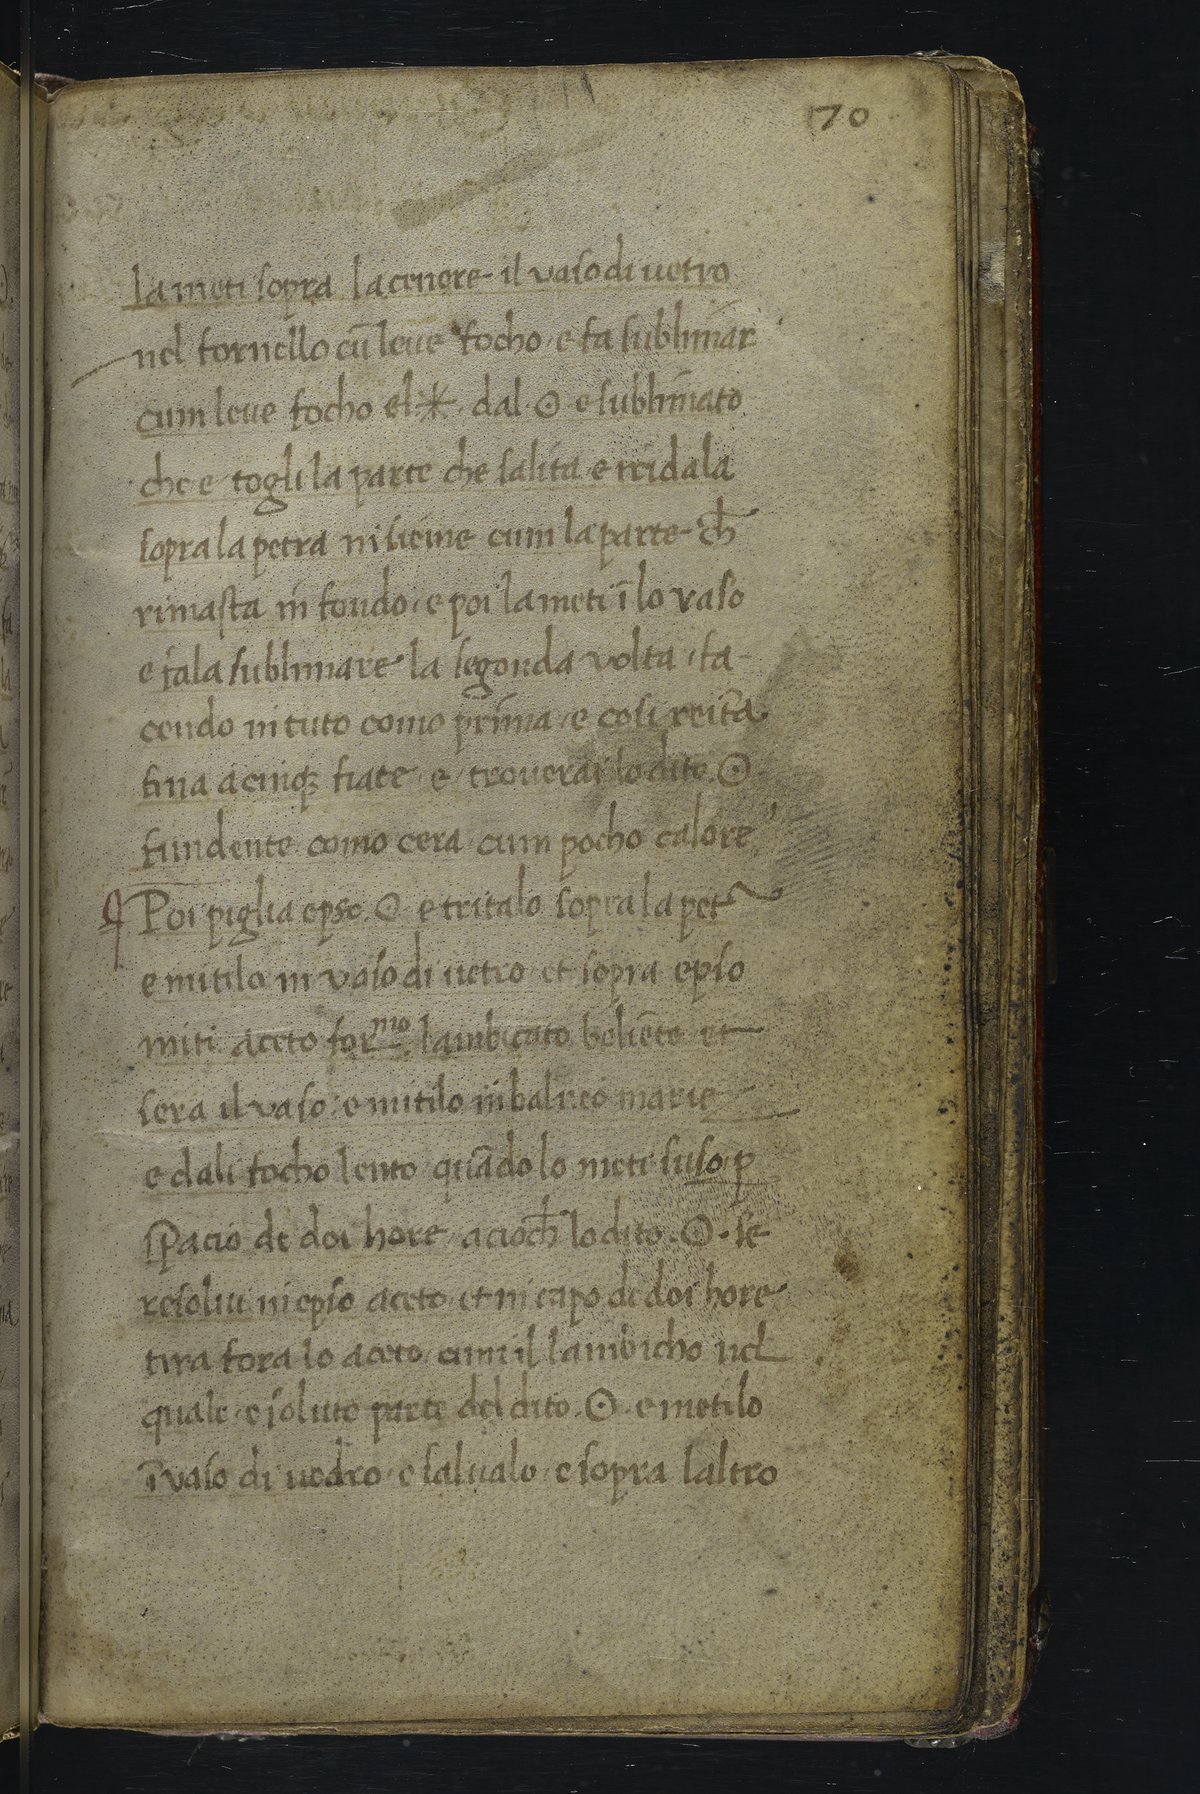 70
la meti sopra la cenere il vaso di uetro
nel fornello cū leue focho e fa sublimar
cum leue focho el ✳ dal ☉ e sublimato
che e togli la parte che salita e tridala
sopra la petra insieme cum la parte ch̄
rimasta in fondo e poi la meti ī lo vaso
e fala sublimare la segonda volta fa-
cendo in tuto como prima e cosi reitā
fina a cinqȝ fiate e trouerai lo dito ☉
fundente como cera cum pocho calore
Poi piglia epso ☉ e tritalo sopra la pet
e mitilo in vaso di uetro et sopra epso
miti aceto for^mo lambicato boliēte et
sera il vaso e mitilo in balneo marie
e dali focho lento quādo lo meti suso ꝑ
spacio de doi hore acioch̄ lo dito ☉ se
resolui in epso aceto et in capo de doi hore
tira fora lo aceto cum il lambicho nel
quale e soluto parte del dito ☉ e metilo
ī vaso di uedro e salualo e sopra laltro